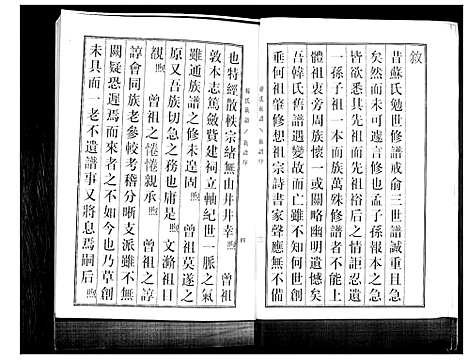 敘
昔蘇氏勉世修譜戒俞三世譜誠重且
矣然而未可遽言也孟子孫報本之急
皆欲悉其先祖而先祖后之情詎忍人
一孫子祖一本而萬殊修譜者不能上
體祖衷旁周族懷一或關略幽明遺憾矣
吾韓氏舊譜遇變故而亡雖不知何世創
於何祖肇修想祖宗詩書家聲應無不備
也特經散軼宗緒無由井井幸 曾祖
敦本志篤斂貲建祠立軌紀世一脈之氣
雖通族譜之修未遑固 曾祖莫遂之
原又吾族切急之務也庸是 文瀚祖曰
覲 曾祖之惓惓親承 曾祖之諄
諄會同諸叅較考稽分晰支派雖不無
闕疑恐遲而來者之不如而大乃草創
未具而一老不遺譜事又將息焉嗣后
韓氏族譜 族譜序
韓氏族譜 族譜序
四